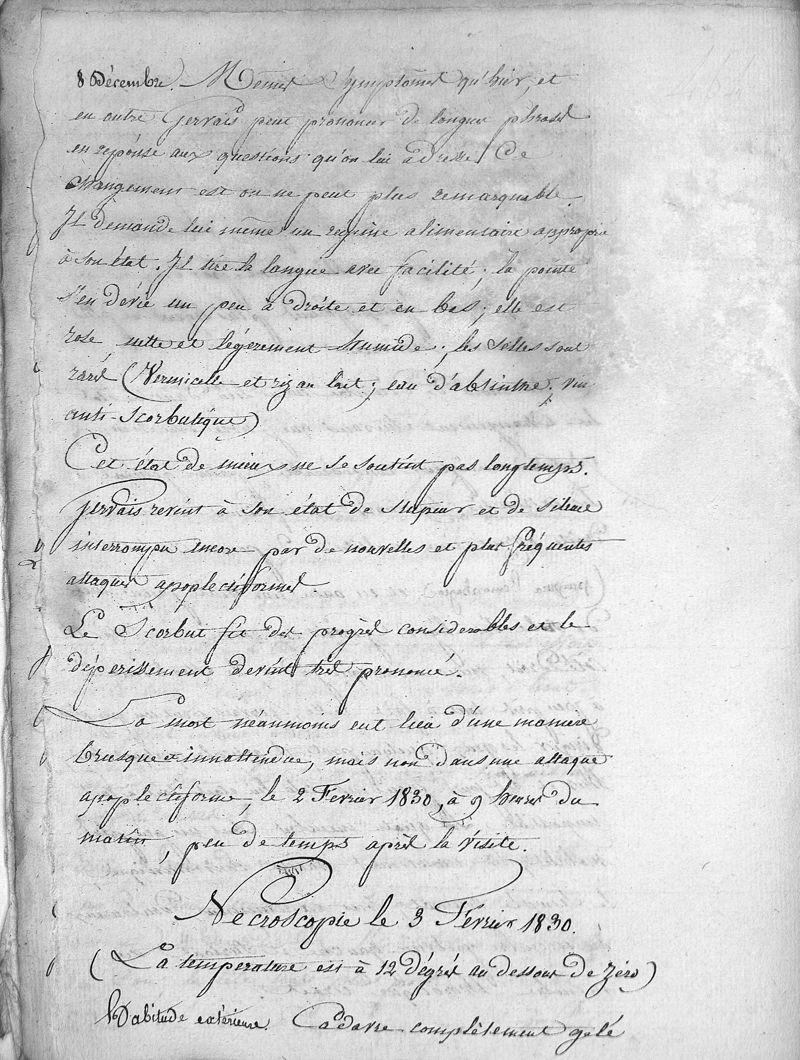 8 Décembre. Mêmes Symptômes qu'hier, et
en outre Gervais peut prononcer de longues phrases
en reponse aux questions qu'on lui adresse. Ce
changement est on ne peut plus remarquable.
Il demande lui même un régime alimentaire approprié
à son état. Il tire la langue avec facilité; la pointe
s'en dévie un peu à droite et en bas; elle est
rose nette et légèrement humide; les Selles sont
rares (Vermicelle et riz au lait; eau d'absinthe; vin
anti-Scorbutique)
Cet état de mieux ne se soutint pas longtemps.
Gervais revint à son état de stupeur et de silence
interrompu encore par de nouvelles et plus fréquentes
attaques apoplectiformes
Le Scorbut fit des progrès considerables et le
dépérissement devint très prononcé.
La mort néanmoins eut lieu d'une maniere
brusque et innattendue, mais non dans une attaque
apoplectiforme, le 2 Fevrier 1830, à 9 heures du
matin, peu de temps après la visite.
Nécroscopie le 3 Février 1830.
(La temperature est à 12 dégrés au dessous de zéro)
Habitude extérieure. Cadavre complètement gelé